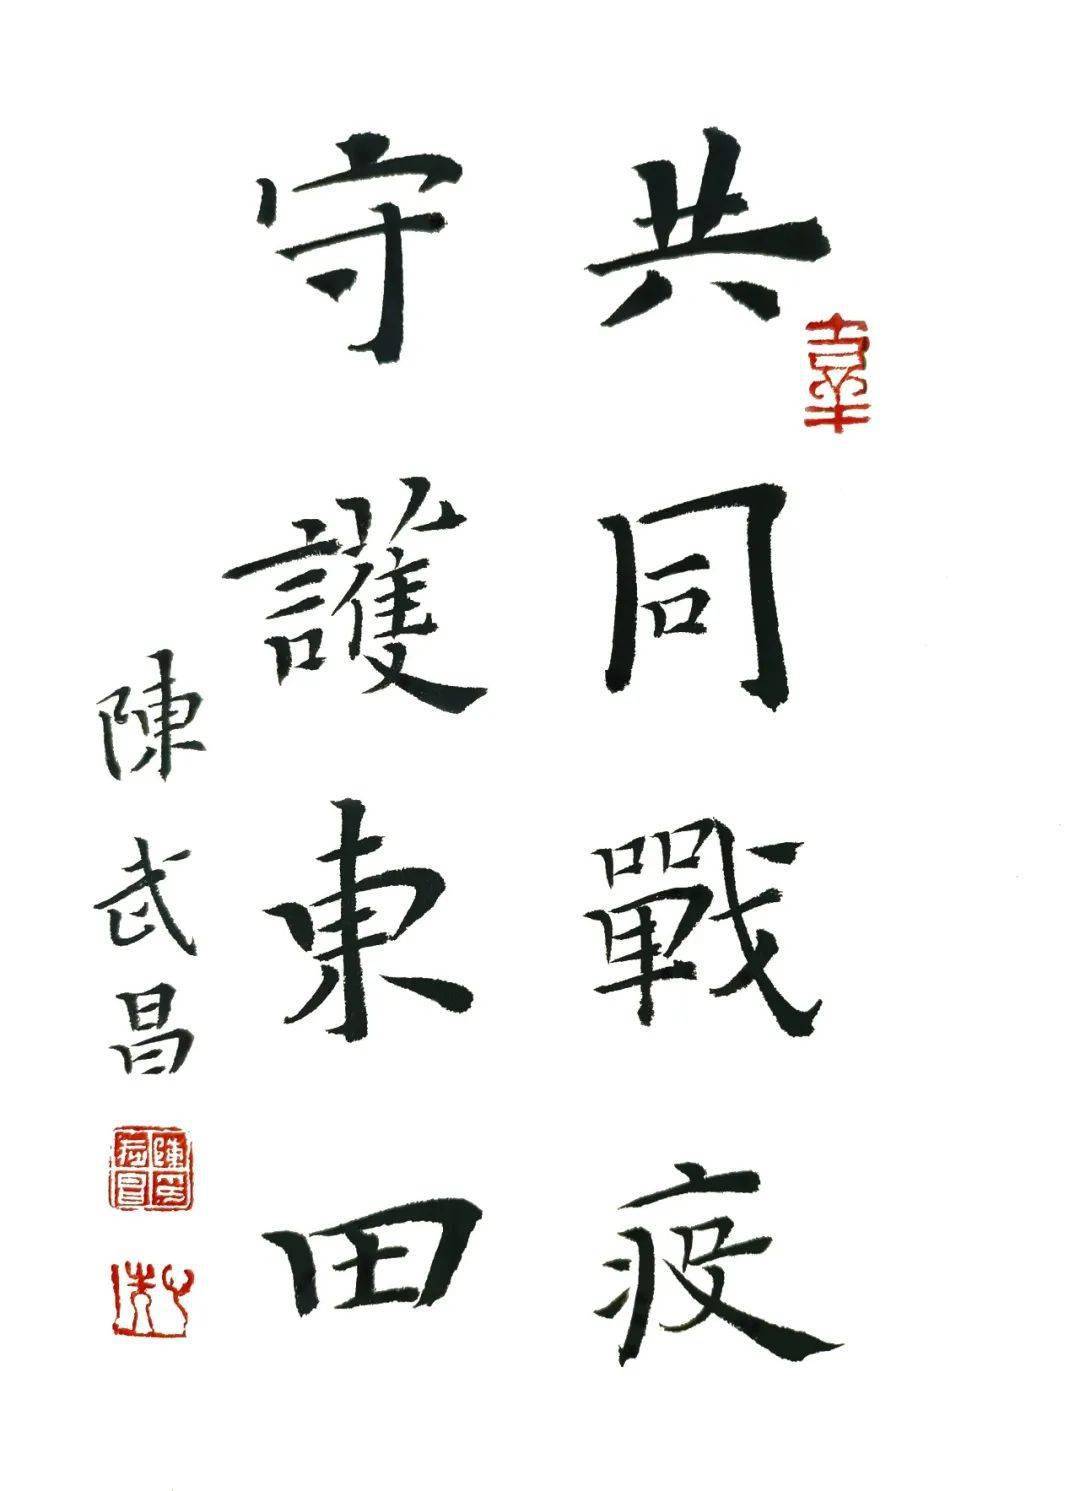 共同戰疫
守護東田
陳武昌